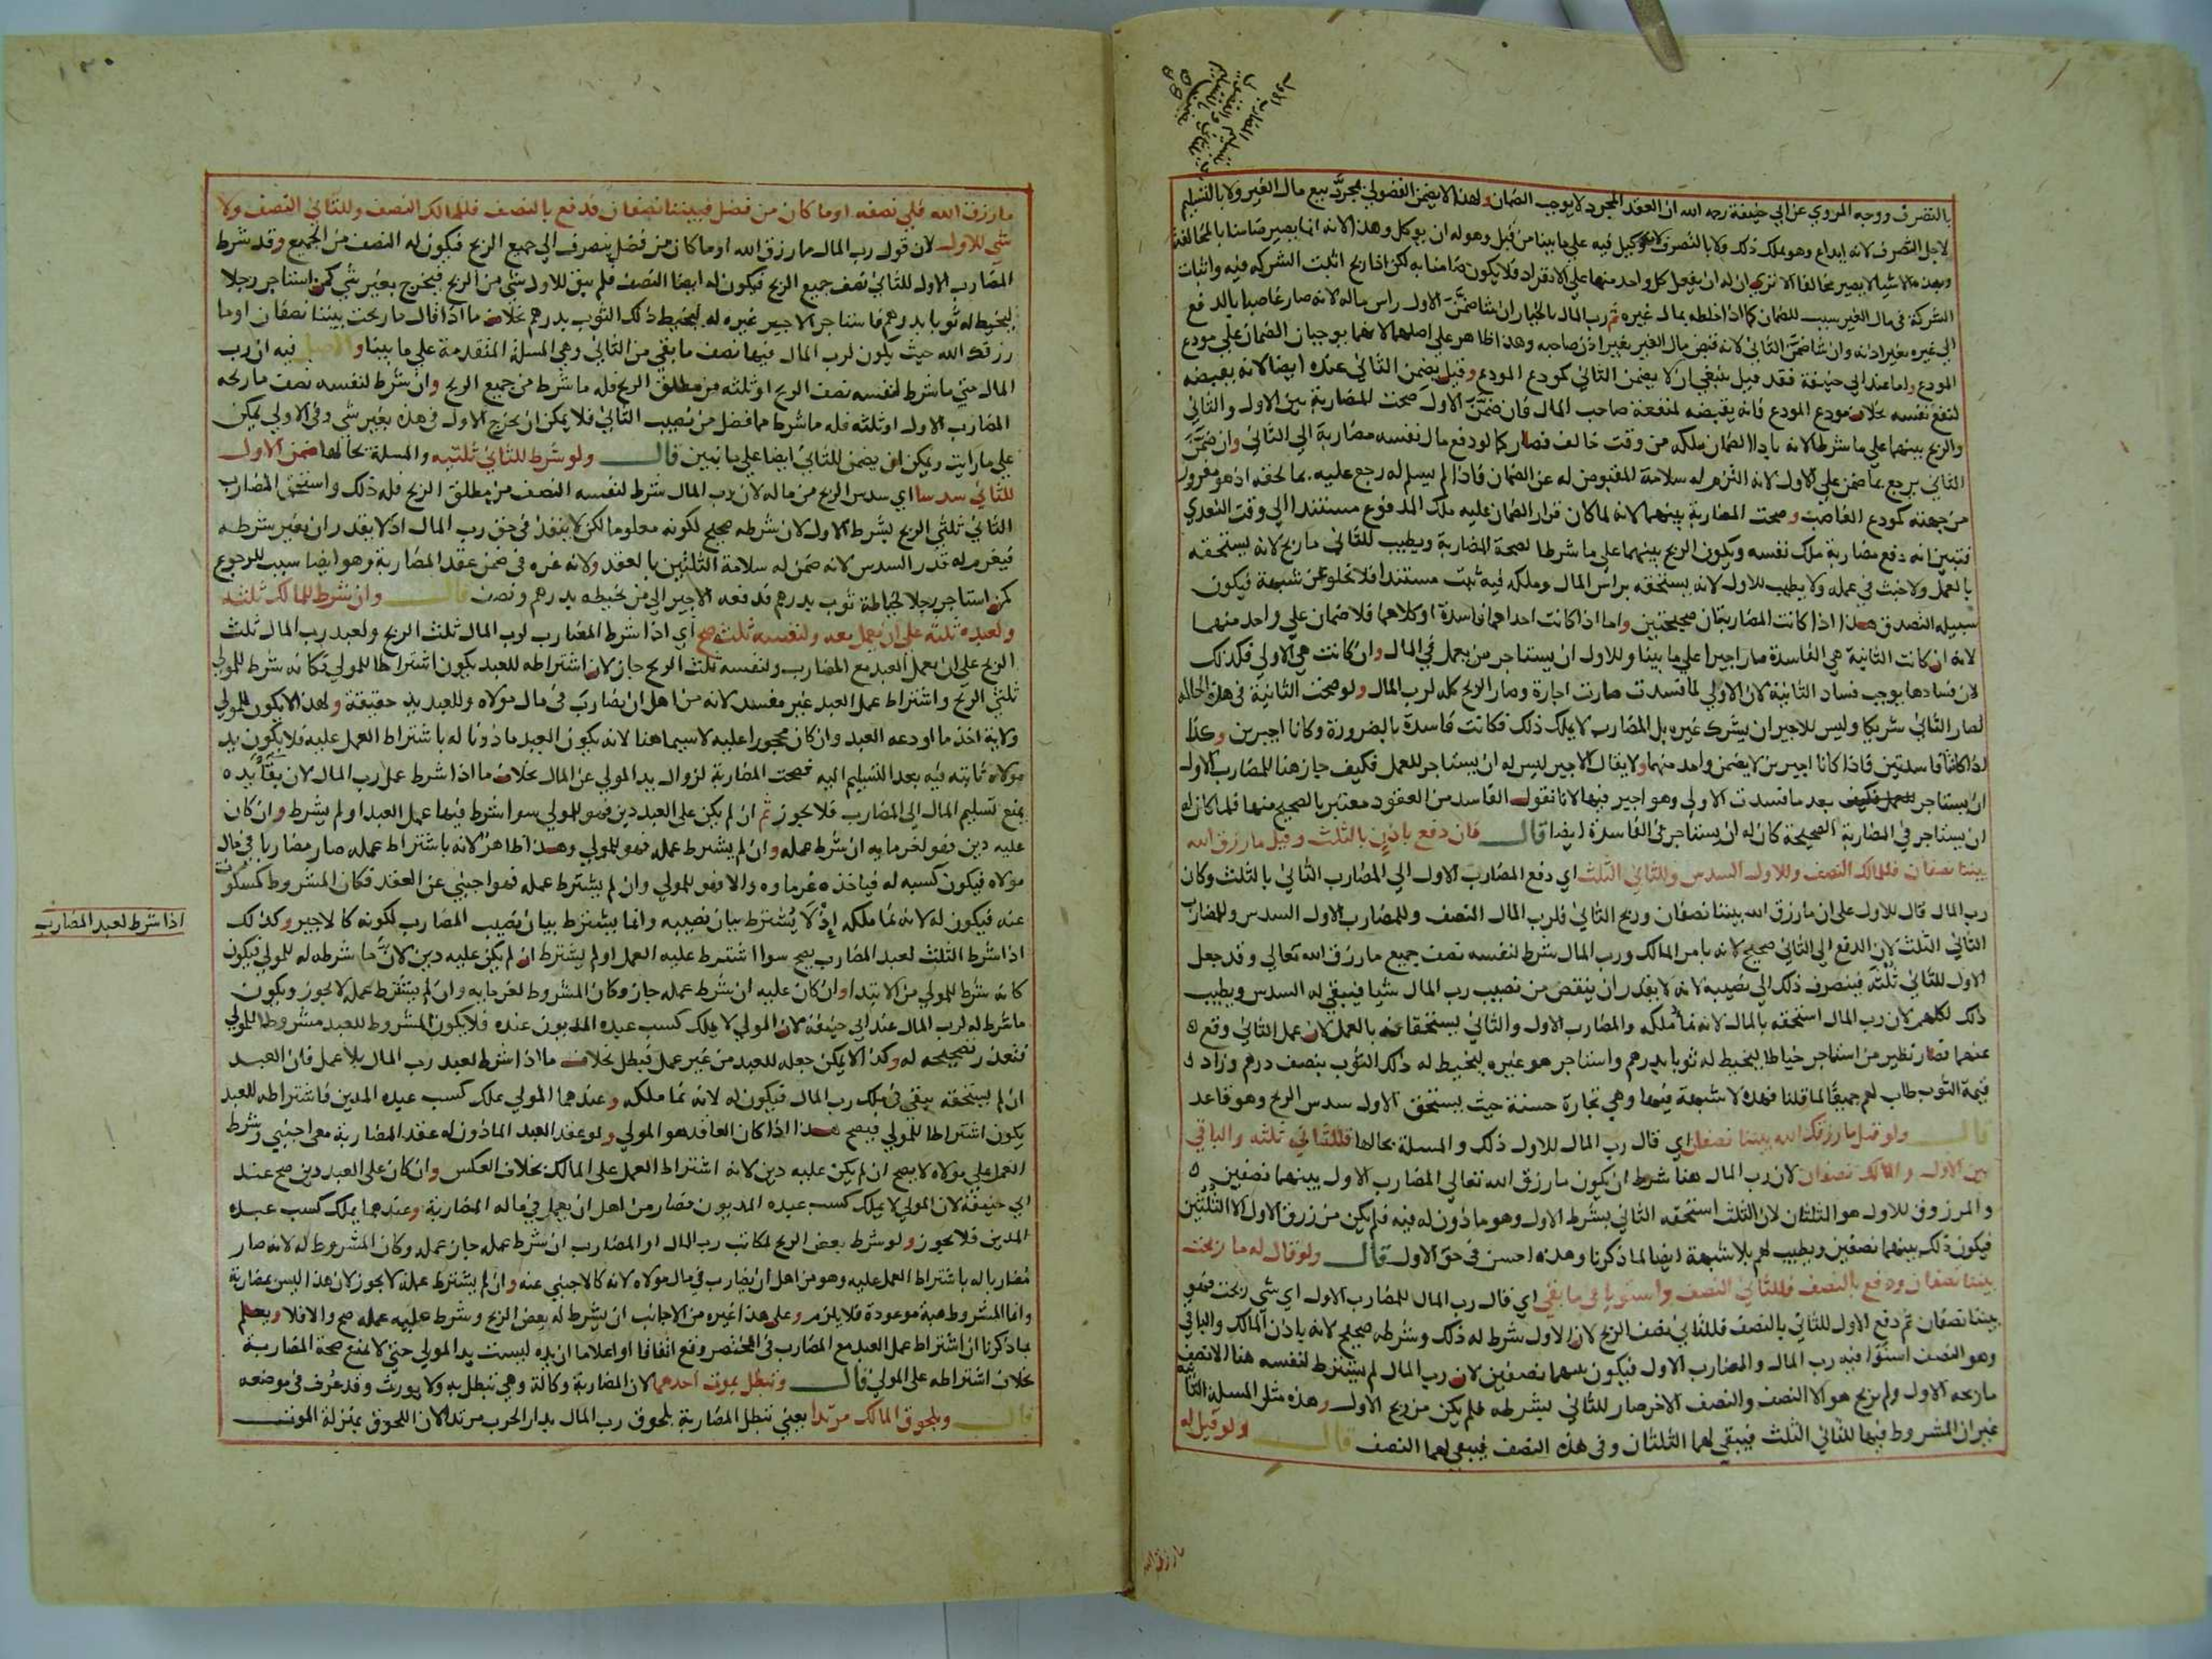 بالتصرف ووجه المروي عن ابي حنيفة رحمه الله ان العقد المجرد لا يوجب الضمان ولهذا لا يضمن الفضولي بمجرد بيع مال الغير ولا بالتسليم
لاجل التصرف لانه ايداع وهو يملك ذلك ولا بالتصرف لانه وكيل فيه على ما بينا من قبل وهو له ان يوكل وهذا لانه انما يصير ضامنا بالمخالفة
وبهذه الاشيا لا يصير مخالفا الا تري ان له ان يفعل كل واحد منها علي الانفراد فلا يكون ضامنا به لكن اذا ربح اثبت الشركة فيه واثبات
الشركة في مال الغير سبب للضمان كما اذا خلطه بمال غيره ثم رب المال بالخيار ان شا ضمن الاول راس ماله لانه صار غاصبا بالدفع
الي غيره بغير اذنه وان شا ضمن الثاني لانه قبض مال الغير بغير اذن صاحبه وهذا ظاهر علي اصلهما لانهما يوجبان الضمان علي مودع
المودع واما عند ابي حنيفة فقد قيل ينبغي ان لا يضمن الثاني كمودع المودع وقيل يضمن الثاني عنده ايضا لانه يقبضه
لنفع نفسه بخلاف مودع المودع فانه يقبضه لمنفعة صاحب المال فان ضمن الاول صحت المضاربة بين الاول والثاني
والربح بينهما علي ما شرطا لانه بادا الضمان ملكه من وقت خالف فصار كما لو دفع مال نفسه مضاربة الي الثاني وان ضمن
الثاني يرجع بما ضمن علي الاول لانه التزم له سلامة المقبوض له عن الضمان فاذا لم يسلم له رجع عليه بما لحقه اذ هو مغرور
من جهته كمودع الغاصب وصحت المضاربة بينهما لانه لما كان قرار الضمان عليه ملك المدفوع مستندا الي وقت التعدي
فتبين انه دفع مضاربة ملك نفسه ويكون الربح بينهما علي ما شرطا لصحة المضاربة ويطيب للثاني ما ربح لانه يستحقه
بالعمل ولا خبث في عمله ولا يطيب للاول لانه يستحقه براس المال وملكه فيه ثبت مستندا فلا يخلو عن شبهة فيكون
سبيله التصدق هذا اذا كانت المضاربتان صحيحتين واما اذا كانت احداهما فاسدة او كلاهما فلا ضمان علي واحد منهما
لانه ان كانت الثانية هي الفاسدة صار اجيرا علي ما بينا وللاول ان يستاجر من يعمل في المال وان كانت هي الاولي فكذلك
لان فسادها يوجب فساد الثانية لان الاولي لما فسدت صارت اجارة وصار الربح كله لرب المال ولو صحت الثانية في هذه الحالة
لصار الثاني شريكا وليس للاجير ان يشرك غيره بل المضارب لا يملك ذلك فكانت فاسدة بالضرورة وكانا اجيرين وكذا
اذا كانتا فاسدتين فاذا كانا اجيرين لا يضمن واحد منهما ولا يقال الاجير ليس له ان يستاجر للعمل فكيف جاز هنا للمضارب الاول
ان يستاجر للعمل فكيف بعد ما فسدت الاولي وهو اجير فيها لانا نقول الفاسد من العقود معتبر بالصحيح منها فلما كان له
ان يستاجر في المضاربة الصحيحة كان له ان يستاجر في الفاسدة ايضا قال فان دفع باذن بالثلث وقيل ما رزق الله
بيننا نصفان فللمالك النصف وللاول السدس وللثاني الثلث اي دفع المضارب الاول الي المضارب الثاني بالثلث وكان
رب المال قال للاول علي ان ما رزق الله بيننا نصفان وربح الثاني فلرب المال النصف وللمضارب الاول السدس وللمضارب
الثاني الثلث لان الدفع الي الثاني صحيح لانه بامر المالك ورب المال شرط لنفسه نصف جميع ما رزق الله تعالي وقد جعل
الاول للثاني ثلثه فينصرف ذلك الي نصيبه لانه لا يقدر ان ينقص من نصيب رب المال شيا فيبقي له السدس ويطيب
ذلك لكلهم لان رب المال استحقه بالمال لانه نما ملكه والمضارب الاول والثاني يستحقانه بالعمل لان عمل الثاني وقع
عنهما فصار نظير من استاجر خياطا ليخيط له ثوبا بدرهم واستاجر هو غيره ليخيط له ذلك الثوب بنصف درهم وزاد
قيمة الثوب طاب لهم جميعا لما قلنا فهذه لا شبهة فيها وهي تجارة حسنة حيث يستحق الاول سدس الربح وهو قاعد
قال ولو قيل ما رزقك الله بيننا نصفان اي قال رب المال للاول ذلك والمسلة بحالها فللثاني ثلثه والباقي
بين الاول والمالك نصفان لان رب المال هنا شرط ان يكون ما رزق الله تعالي المضارب الاول بينهما نصفين
والمرزوق للاول هو الثلثان لان الثلث استحقه الثاني بشرط الاول وهو ماذون له فيه فلم يكن من رزق الاول الا الثلثين
فيكون ذلك بينهما نصفين ويطيب لهم بلا شبهة ايضا لما ذكرنا وهذه احسن في حق الاول قال ولو قال له ما ربحت
بيننا نصفان ودفع بالنصف فللثاني النصف واستويا في ما بقي اي قال رب المال للمضارب الاول اي شي ربحت فهو
بيننا نصفان ثم دفع الاول للثاني بالنصف فللثاني نصف الربح لان الاول شرط له ذلك وشرطه صحيح لانه باذن المالك والباقي
وهو النصف استوا فيه رب المال والمضارب الاول فيكون بينهما نصفين لان رب المال لم يشترط لنفسه هنا الا نصف
ما ربحه الاول ولم يربح هو الا النصف والنصف الاخر صار للثاني بشرطه فلم يكن من ربح الاول وهذه مثل المسلة الثانية
غير ان المشروط فيها للثاني الثلث فيبقي لهما الثلثان وفي هذه النصف فيبقي لهما النصف قال ولو قيل له
ما رزق الله
١٣٠
ما رزق الله فلي نصفه او ما كان من فضل فبيننا نصفان فدفع بالنصف فللمالك النصف وللثاني النصف ولا
شي للاول لان قول رب المال ما رزق الله او ما كان من فضل ينصرف الي جميع الربح فيكون له النصف من الجميع وقد شرط
المضارب الاول للثاني نصف جميع الربح فيكون له ايضا النصف فلم يبق للاول شي من الربح فيخرج بغير شي كمن استاجر رجلا
ليخيط له ثوبا بدرهم فاستاجر الاجير غيره له ليخيط ذلك الثوب بدرهم بخلاف ما اذا قال ما ربحت بيننا نصفان او ما
رزقك الله حيث يكون لرب المال فيها نصف ما بقي من الثاني وهي المسلة المتقدمة علي ما بينا والاصل فيه ان رب
المال متي ما شرط لنفسه نصف الربح او ثلثه من مطلق الربح فله ما شرط من جميع الربح وان شرط لنفسه نصف ما ربحه
المضارب الاول او ثلثه فله ما شرط مما فضل من نصيب الثاني فلا يمكن ان يخرج الاول في هذه بغير شي وفي الاولي يمكن
علي ما رايت ويمكن ان يضمن للثاني ايضا علي ما نبين قال ولو شرط للثاني ثلثيه والمسلة بحالها ضمن الاول
للثاني سدسا اي سدس الربح من ماله لان رب المال شرط لنفسه النصف من مطلق الربح فله ذلك واستحق المضارب
الثاني ثلثي الربح بشرط الاول لان شرطه صحيح لكونه معلوما لكن لا ينفذ في حق رب المال اذ لا يقدر ان يغير شرطه
فيغرم له قدر السدس لانه ضمن له سلامة الثلثين بالعقد ولانه غره في ضمن عقد المضاربة وهو ايضا سبب للرجوع
كمن استاجر رجلا لخياطة ثوب بدرهم فدفعه الاجير الي من يخيطه بدرهم ونصف قال وان شرط للمالك ثلثه
ولعبده ثلثه علي ان يعمل معه ولنفسه ثلث صح اي اذا شرط المضارب لرب المال ثلث الربح ولعبد رب المال ثلث
الربح علي ان يعمل العبد مع المضارب ولنفسه ثلث الربح جاز لان اشتراطه للعبد يكون اشتراطا للمولي فكانه شرط للمولي
ثلثي الربح واشتراط عمل العبد غير مفسد لانه من اهل ان يضارب في مال مولاه وللعبد يد حقيقة ولهذا لا يكون للمولي
ولاية اخذ ما اودعه العبد وان كان محجورا عليه لا سيما هنا لانه يكون العبد ماذونا له باشتراط العمل عليه فلا يكون يد
مولاه ثابته فيه بعد التسليم اليه فصحت المضاربة لزوال يد المولي عن المال بخلاف ما اذا شرط عمل رب المال لان بقا يده
يمنع تسليم المال الي المضارب فلا يجوز ثم ان لم يكن علي العبد دين فهو للمولي سوا شرط فيها عمل العبد او لم يشرط وان كان
عليه دين فهو لغرمايه ان شرط عمله وان لم يشرط عمله فهو للمولي وهذا ظاهر لانه باشتراط عمله صار مضاربا في مال
مولاه فيكون كسبه له فياخذه غرماوه والا فهو للمولي وان لم يشترط عمله فهو اجنبي عن العقد فكان المشروط كمسكوت
عنه فيكون له لانه نما ملكه اذ لا يشترط بيان نصيبه وانما يشترط بيان نصيب المضارب لكونه كالاجير وكذلك
اذا شرط لعبد المضارب
اذا شرط الثلث لعبد المضارب يصح سوا اشترط عليه العمل او لم يشترط ان لم يكن عليه دين لان ما شرطه له للمولي فيكون
كانه شرط للمولي من الابتدا وان كان عليه ان شرط عمله جاز وكان المشروط لغرمايه وان لم يشترط عمله لا يجوز ويكون
ما شرط له لرب المال عند ابي حنيفة لان المولي لا يملك كسب عبده المديون عنده فلا يكون المشروط للعبد مشروطا للمولي
فتعذر تصحيحه له وكذا لا يمكن جعله للعبد من غير عمل فبطل بخلاف ما اذا شرط لعبد رب المال بلا عمل فان العبد
ان لم يستحقه يبقي في ملك رب المال فيكون له لانه نما ملكه وعندهما المولي يملك كسب عبده المدين فاشتراطه للعبد
يكون اشتراطا للمولي فيصح هذا اذا كان العاقد هو المولي ولو عقد العبد الماذون له عقد المضاربة مع اجنبي وشرط
العمل علي مولاه لا يصح ان لم يكن عليه دين لانه اشتراط العمل علي المالك بخلاف العكس وان كان علي العبد دين صح عند
ابي حنيفة لان المولي لا يملك كسب عبده المديون فصار من اهل ان يعمل في ماله المضاربة وعندهما يملك كسب عبده
المدين فلا يجوز ولو شرط بعض الربح لمكاتب رب المال او المضارب ان شرط عمله جاز عمله وكان المشروط له لانه صار
مضاربا له باشتراط العمل عليه وهو من اهل ان يضارب في مال مولاه لانه كالاجنبي عنه وان لم يشترط عمله لا يجوز لان هذا ليس بمضاربة
وانما المشروط هبة موعودة فلا يلزم وعلي هذا غيره من الاجانب ان يشرط له بعض الربح وشرط عليه عمله صح والا فلا ويعلم
بما ذكرنا ان اشتراط عمل العبد مع المضارب في المختصر وقع اتفاقا او اعلاما ان يده ليست يد المولي حتي لا يمنع صحة المضاربة
بخلاف اشتراطه علي المولي قال وتبطل بموت احدهما لان المضاربة وكالة وهي تبطل به ولا يورث وقد عرف في موضعه
قال وبلحوق المالك مرتدا يعني تبطل المضاربة بلحوق رب المال بدار الحرب مرتدا لان اللحوق بمنزلة الموت